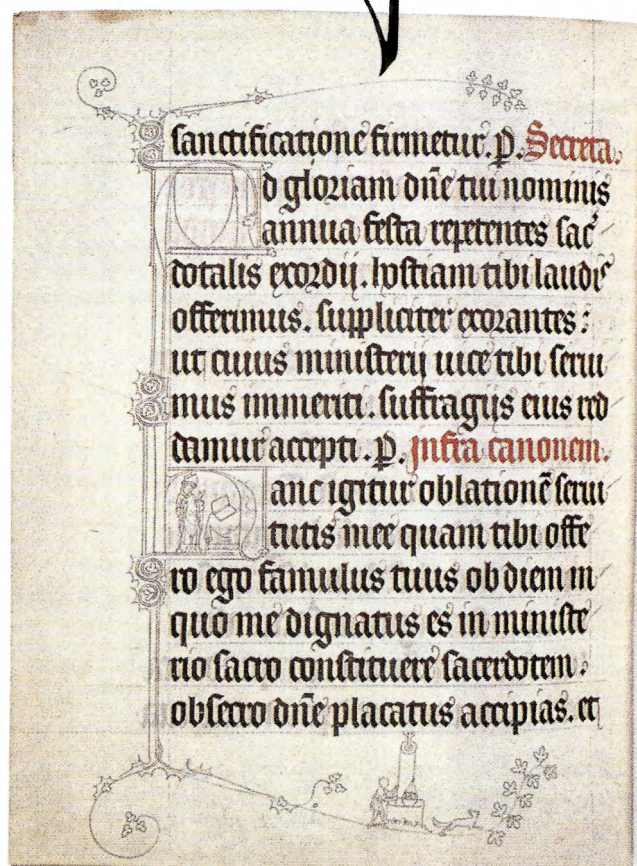 sanctificatione firmetur. p. Secreta.
d gloriam dñe tui nominis
annua festa repetentes sac̉
dotalis exordij. hostiam tibi laudis
offerimus. suppliciter exorantes:
ut cuius ministerij uice tibi serui
mus immeriti. suffragijs eius red
damur accepti. p. infra canonem.
Hanc igitur oblationē serui
tutis mee quam tibi offe
ro ego famulus tuus ob diem in
quo me dignatus es in ministe
rio sacro constituere sacerdotem.
obsecro dñe placatus accipias. et